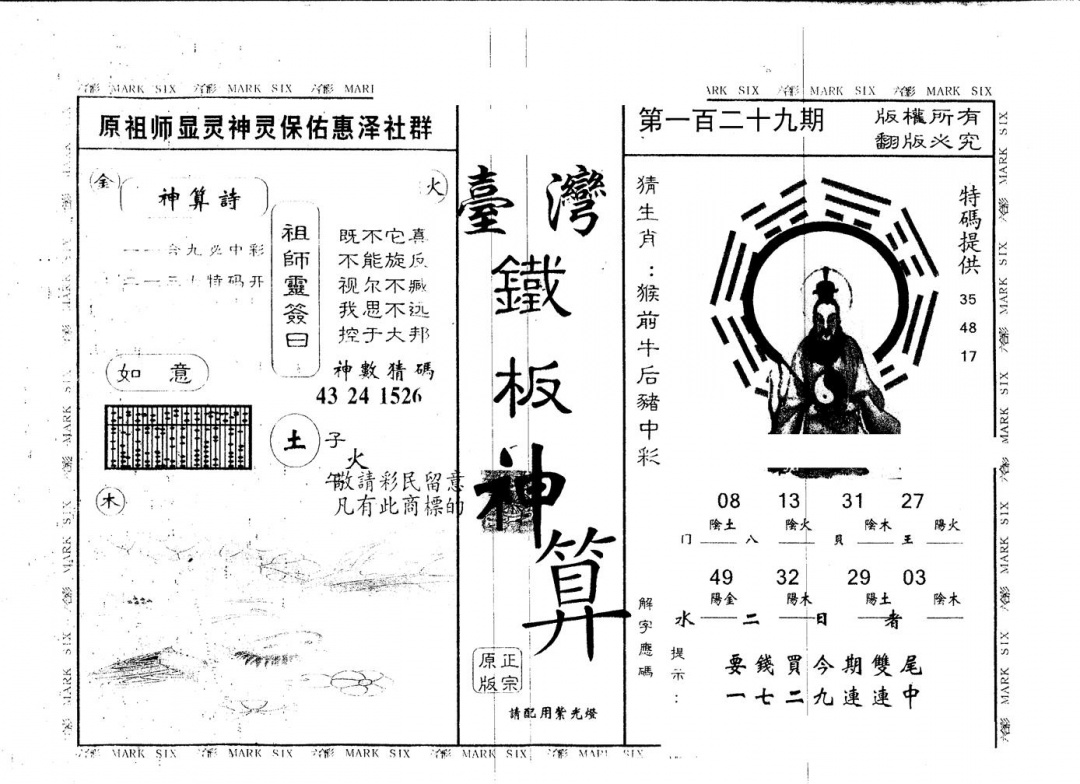 六彩 MARK SIX 六彩 MARK SIX 六彩 MARI
ARK SIX 六彩 MARK SIX 六彩 MARK SIX
原祖师显灵神灵保佑惠泽社群
金
神算詩
火
合九必中彩
特码
开
祖師靈簽曰
既不它真
不能旋反
视尔不臧
我思不远
控于大邦
神數猜碼
43 24 1526
如意
土
子
火
午
木
敬請彩民留意
凡有此商標的
臺灣
鐵板神算
正宗
原版
請配用紫光燈
第一百二十九期
版權所有
翻版必究
猜生肖：猴前牛后豬中彩
特碼提供
35
48
17
08 13 31 27
陰土 陰火 陰木 陽火
门 八 貝 王
49 32 29 03
陽金 陽木 陽土 陰木
水 二 日 者
解字應碼
提示：
要錢買今期雙尾
一七二九連連中
六彩 MARK SIX 六彩 MARK SIX 六彩 MARK SIX 六彩